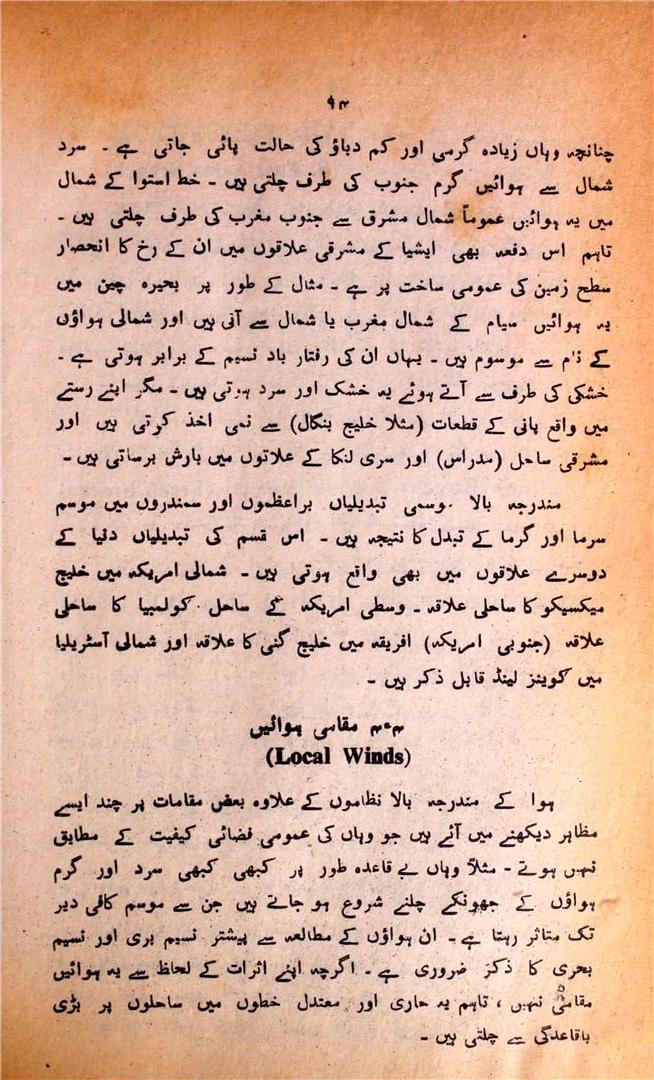 ۹۴
چنانچہ وہاں زیادہ گرمی اور کم دباؤ کی حالت پائی جاتی ہے ۔ سرد
شمال سے ہوائیں گرم جنوب کی طرف چلتی ہیں ۔ خط استوا کے شمال
میں یہ ہوائیں عموماً شمال مشرق سے جنوب مغرب کی طرف چلتی ہیں ۔
تاہم اس دفعہ بھی ایشیا کے مشرقی علاقوں میں ان کے رخ کا انحصار
سطح زمین کی عمومی ساخت پر ہے ۔ مثال کے طور پر بحیرہ چین میں
یہ ہوائیں سیام کے شمال مغرب یا شمال سے آتی ہیں اور شمالی ہواؤں
کے نام سے موسوم ہیں ۔ یہاں ان کی رفتار باد نسیم کے برابر ہوتی ہے ۔
خشکی کی طرف سے آتے ہوئے یہ خشک اور سرد ہوتی ہیں ۔ مگر اپنے رستے
میں واقع پانی کے قطعات (مثلا خلیج بنگال) سے نمی اخذ کرتی ہیں اور
مشرقی ساحل (مدراس) اور سری لنکا کے علاقوں میں بارش برساتی ہیں ۔
مندرجہ بالا موسمی تبدیلیاں براعظموں اور سمندروں میں موسم
سرما اور گرما کے تبدل کا نتیجہ ہیں ۔ اس قسم کی تبدیلیاں دنیا کے
دوسرے علاقوں میں بھی واقع ہوتی ہیں ۔ شمالی امریکہ میں خلیج
میکسیکو کا ساحلی علاقہ ۔ وسطی امریکہ کے ساحل کولمبیا کا ساحلی
علاقہ (جنوبی امریکہ) افریقہ میں خلیج گنی کا علاقہ اور شمالی آسٹریلیا
میں کوینز لینڈ قابل ذکر ہیں ۔
۴ء۴ مقامی ہوائیں
(Local Winds)
ہوا کے مندرجہ بالا نظاموں کے علاوہ بعض مقامات پر چند ایسے
مظاہر دیکھنے میں آئے ہیں جو وہاں کی عمومی فضائی کیفیت کے مطابق
نہیں ہوتے ۔ مثلاً وہاں بے قاعدہ طور پر کبھی کبھی سرد اور گرم
ہواؤں کے جھونکے چلنے شروع ہو جاتے ہیں جن سے موسم کافی دیر
تک متاثر رہتا ہے ۔ ان ہواؤں کے مطالعہ سے پیشتر نسیم بری اور نسیم
بحری کا ذکر ضروری ہے ۔ اگرچہ اپنے اثرات کے لحاظ سے یہ ہوائیں
مقامی نہیں ، تاہم یہ حاری اور معتدل خطوں میں ساحلوں پر بڑی
باقاعدگی سے چلتی ہیں ۔